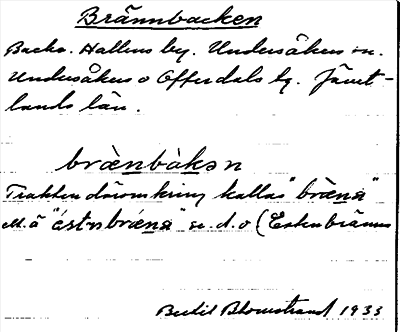 Brännbacken
Backe. Hallens by. Undersåkers sn.
Undersåkers o Offerdals tg. Jämt-
lands län.
brὰnbàkən
Trakten däromkring kallas "brὰna"
"éstnbrὰna" se. d. o (Estenbränna
Bertil Blomstrand 1933